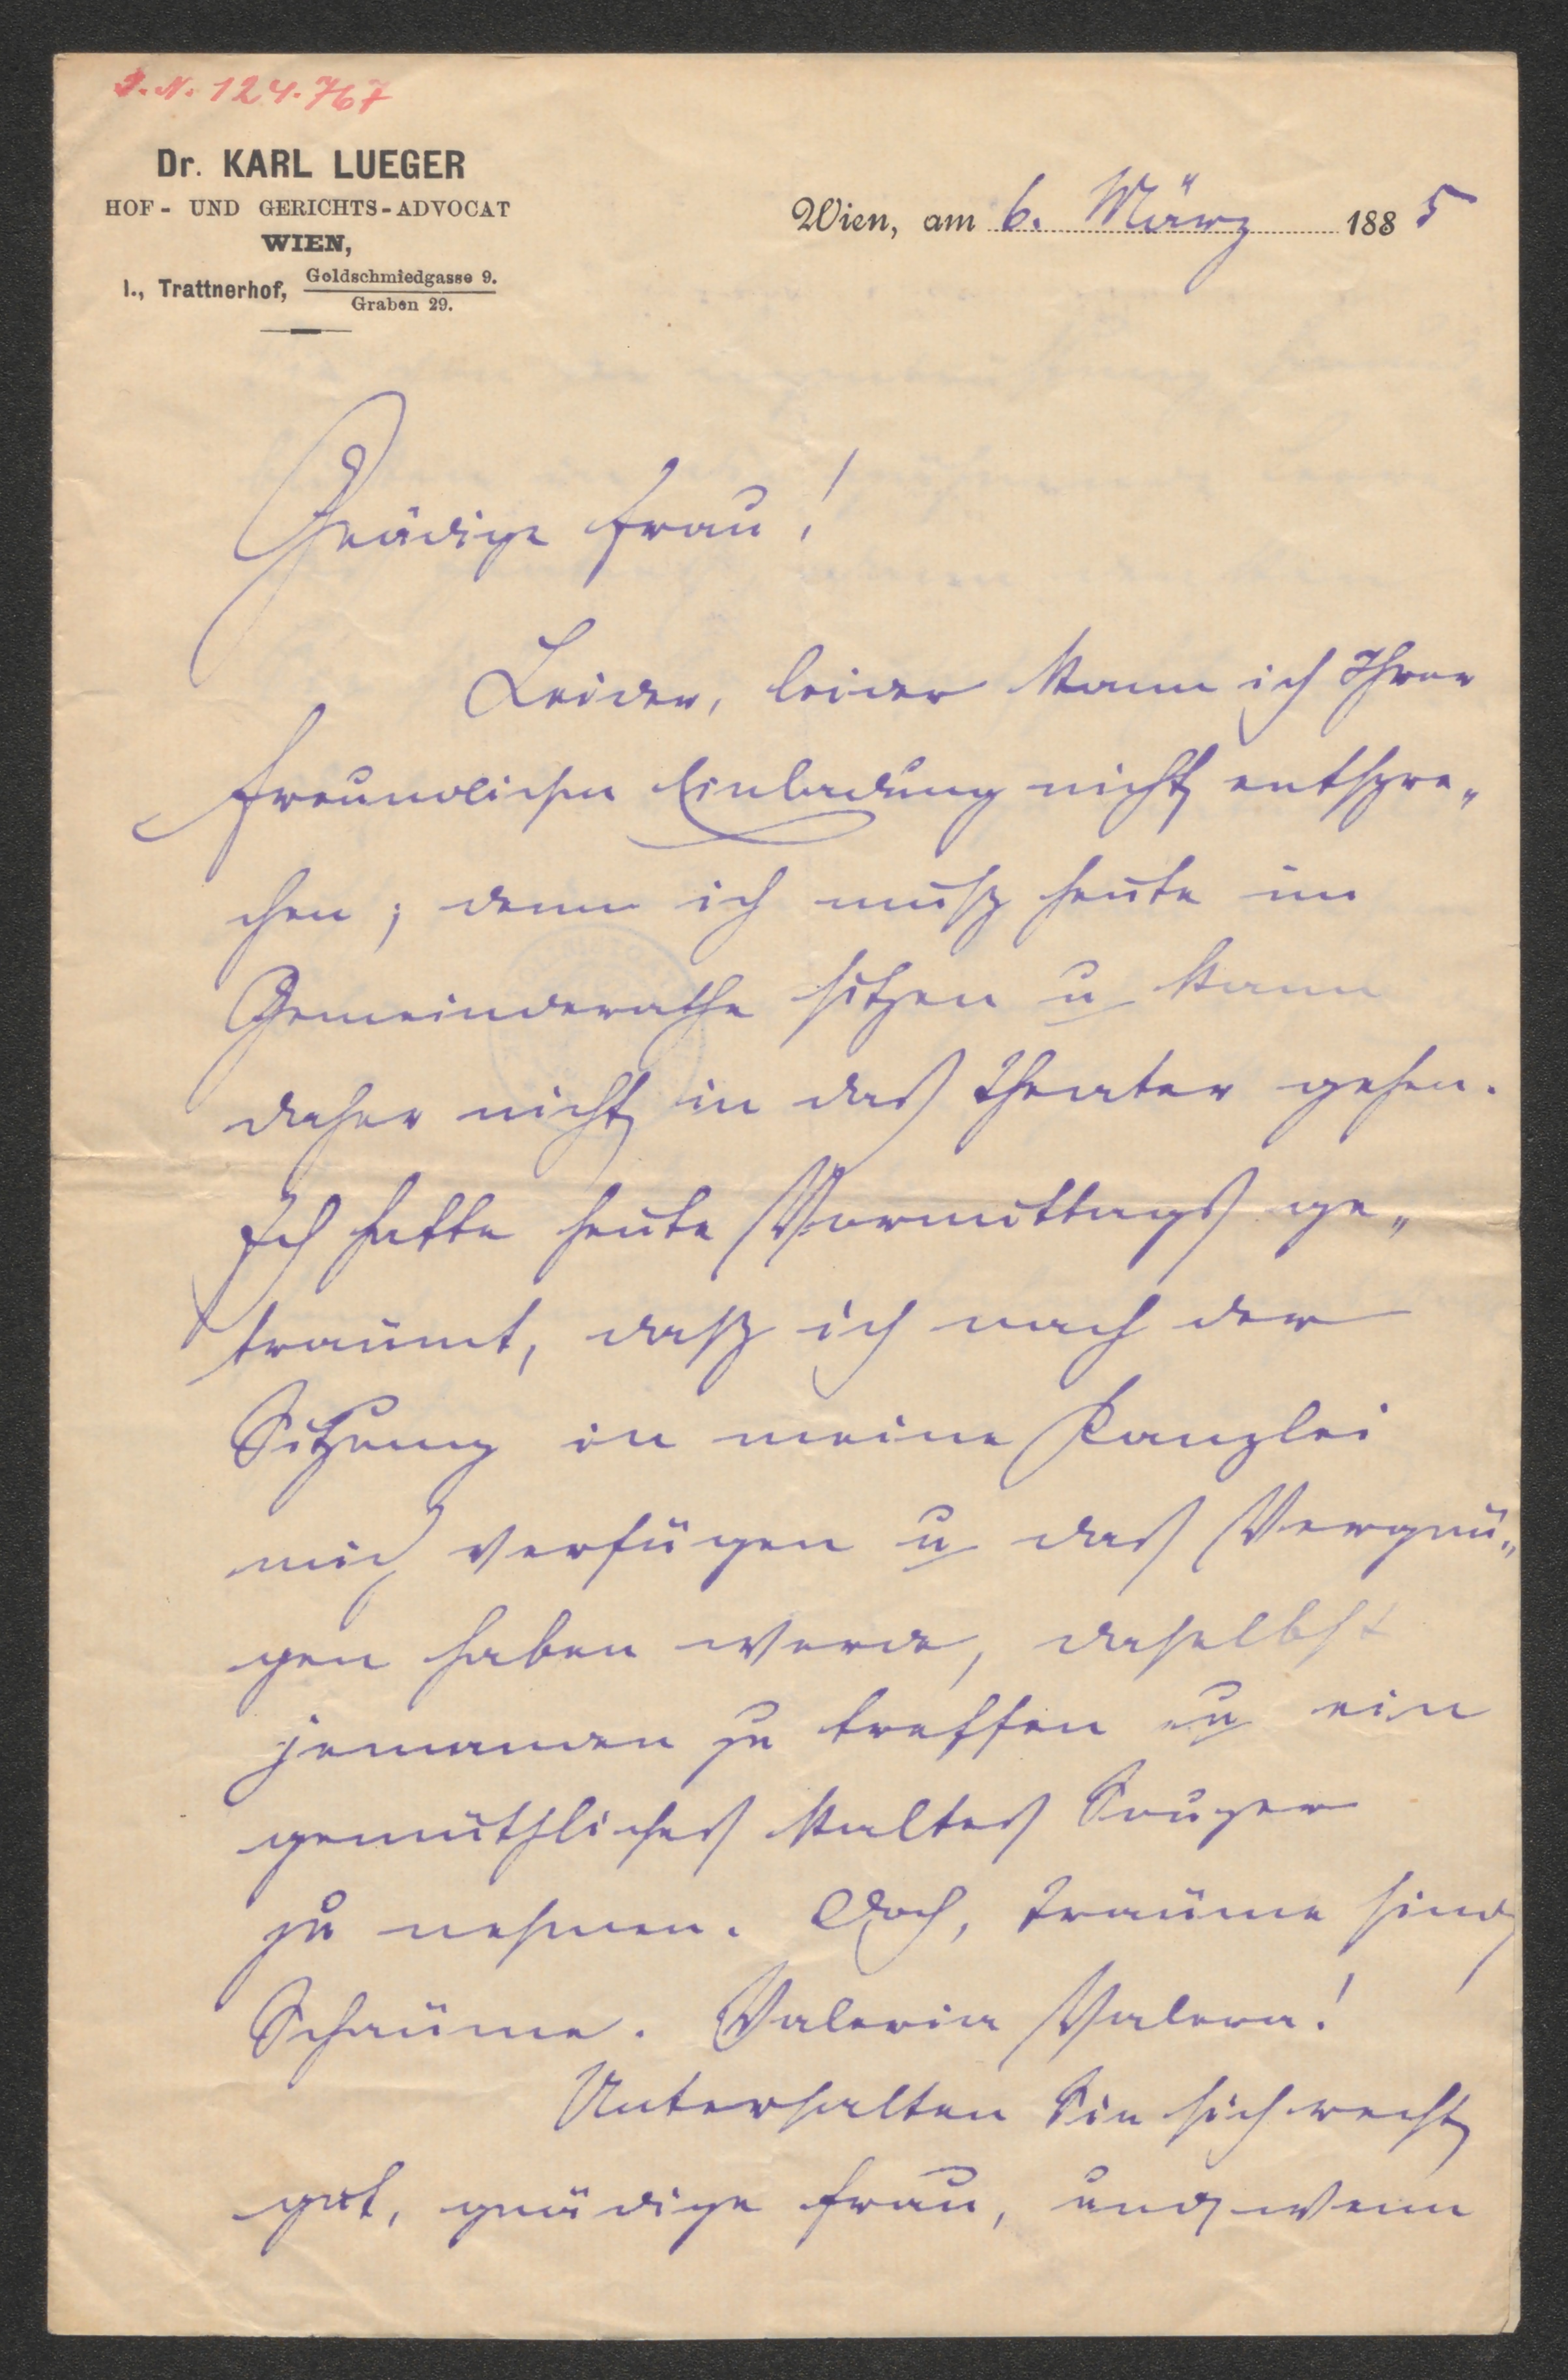 I. N. 124.767
Dr. KARL LUEGER
HOF- UND GERICHTS-ADVOCAT
WIEN,
I., Trattnerhof, Goldschmiedgasse 9.
Graben 29.
Wien, am 6. März 1885
Gnädige Frau!
Leider, leider kann ich Ihrer
freundlichen Einladung nicht entspre„
chen; denn ich muß heute im
Gemeinderathe sitzen u kann
daher nicht in das Theater gehen.
Ich hatte heute Vormittags ge„
träumt, daß ich nach der
Sitzung in meine Kanzlei
mich verfügen u das Vergnü„
gen haben werde, daselbst
jemanden zu treffen u ein
gemüthliches kaltes Souper
zu nehmen. Doch, Träume sind
Schäume. Valeria Valera!
Unterhalten Sie sich recht
gut, gnädige Frau, und wenn